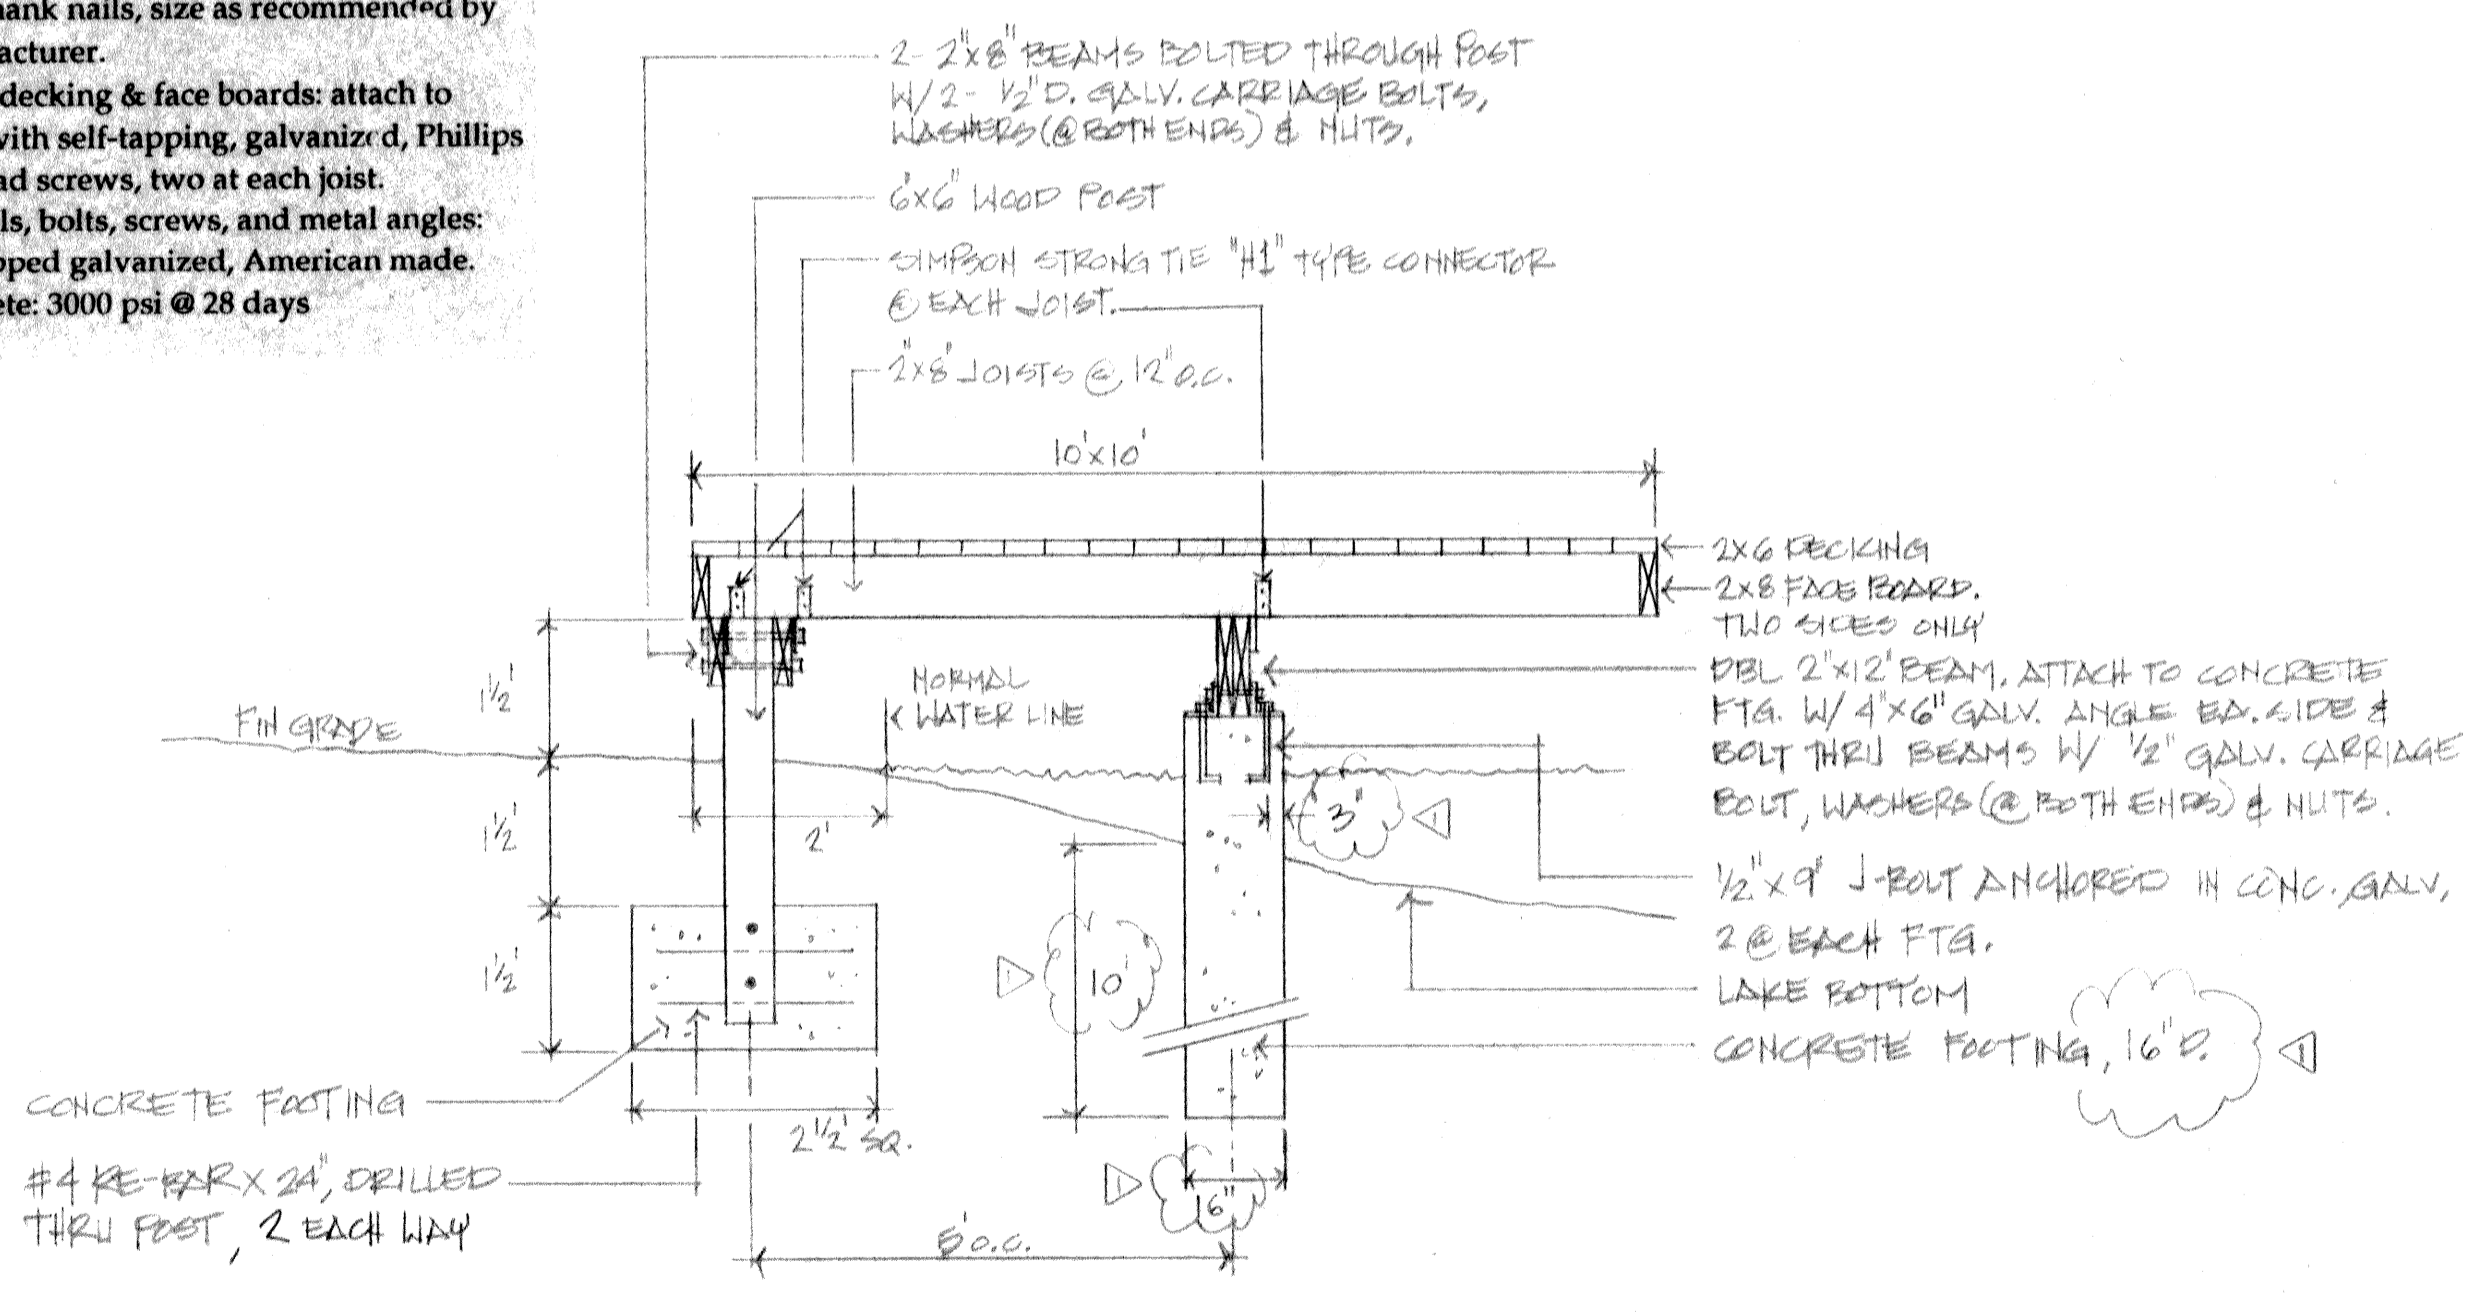 hank nails, size as recommended by
acturer.
decking & face boards: attach to
with self-tapping, galvanized, Phillips
ad screws, two at each joist.
ls, bolts, screws, and metal angles:
pped galvanized, American made.
ete: 3000 psi @ 28 days
2- 2"x8" BEAMS BOLTED THROUGH POST
W/ 2- 1/2" D. GALV. CARRIAGE BOLTS,
WASHERS (@ BOTH ENDS) & NUTS.
6"x6" WOOD POST
SIMPSON STRONG TIE "H1" TYPE CONNECTOR
@ EACH JOIST.
2"x8" JOISTS @ 12" O.C.
10'x10'
2x6 DECKING
2x8 FACE BOARD.
TWO SIDES ONLY
DBL 2"x12" BEAM. ATTACH TO CONCRETE
FTG. W/ 4"x6" GALV. ANGLE EA. SIDE &
BOLT THRU BEAMS W/ 1/2" GALV. CARRIAGE
BOLT, WASHERS (@ BOTH ENDS) & NUTS.
1 1/2'
NORMAL
WATER LINE
FIN GRADE
1 1/2'
2'
3'
1
1/2" x 9" J-BOLT ANCHORED IN CONC., GALV,
2 @ EACH FTG.
1 1/2'
1
10'
LAKE BOTTOM
CONCRETE FOOTING, 16" D.
1
CONCRETE FOOTING
2 1/2' SQ.
#4 RE-BAR x 24", DRILLED
THRU POST, 2 EACH WAY
1
16"
5' O.C.